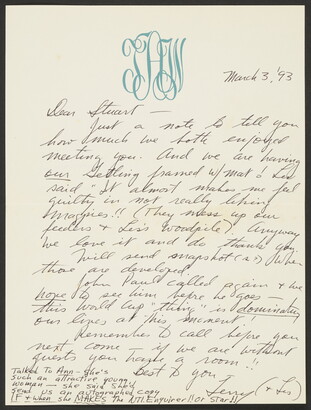 March 3, '93
Dear Stuart —
Just a note to tell you
how much we both enjoyed
meeting you. And we are having
our Gedling framed w/mat & Lis
said "It almost makes me feel
guilty in not really liking
magpies!! (They mess up our
feeders & Lis's woodpile). Anyway
we love it and do thank you.
Will send snapshot(s) when
those are developed.
John Paul called again & we
hope to see him before he goes —
this "world cup" thing is dominating
our lives at this moment.
Remember to call before you
next come — if we are without
guests you have a room!!
Best to you —
Terry (& Lis)
Talked to Ann — she's
such an attractive young
woman — she said she'd
send us an autographed copy
if & when she MAKES the Ntl. Enquirer!! (or Star)